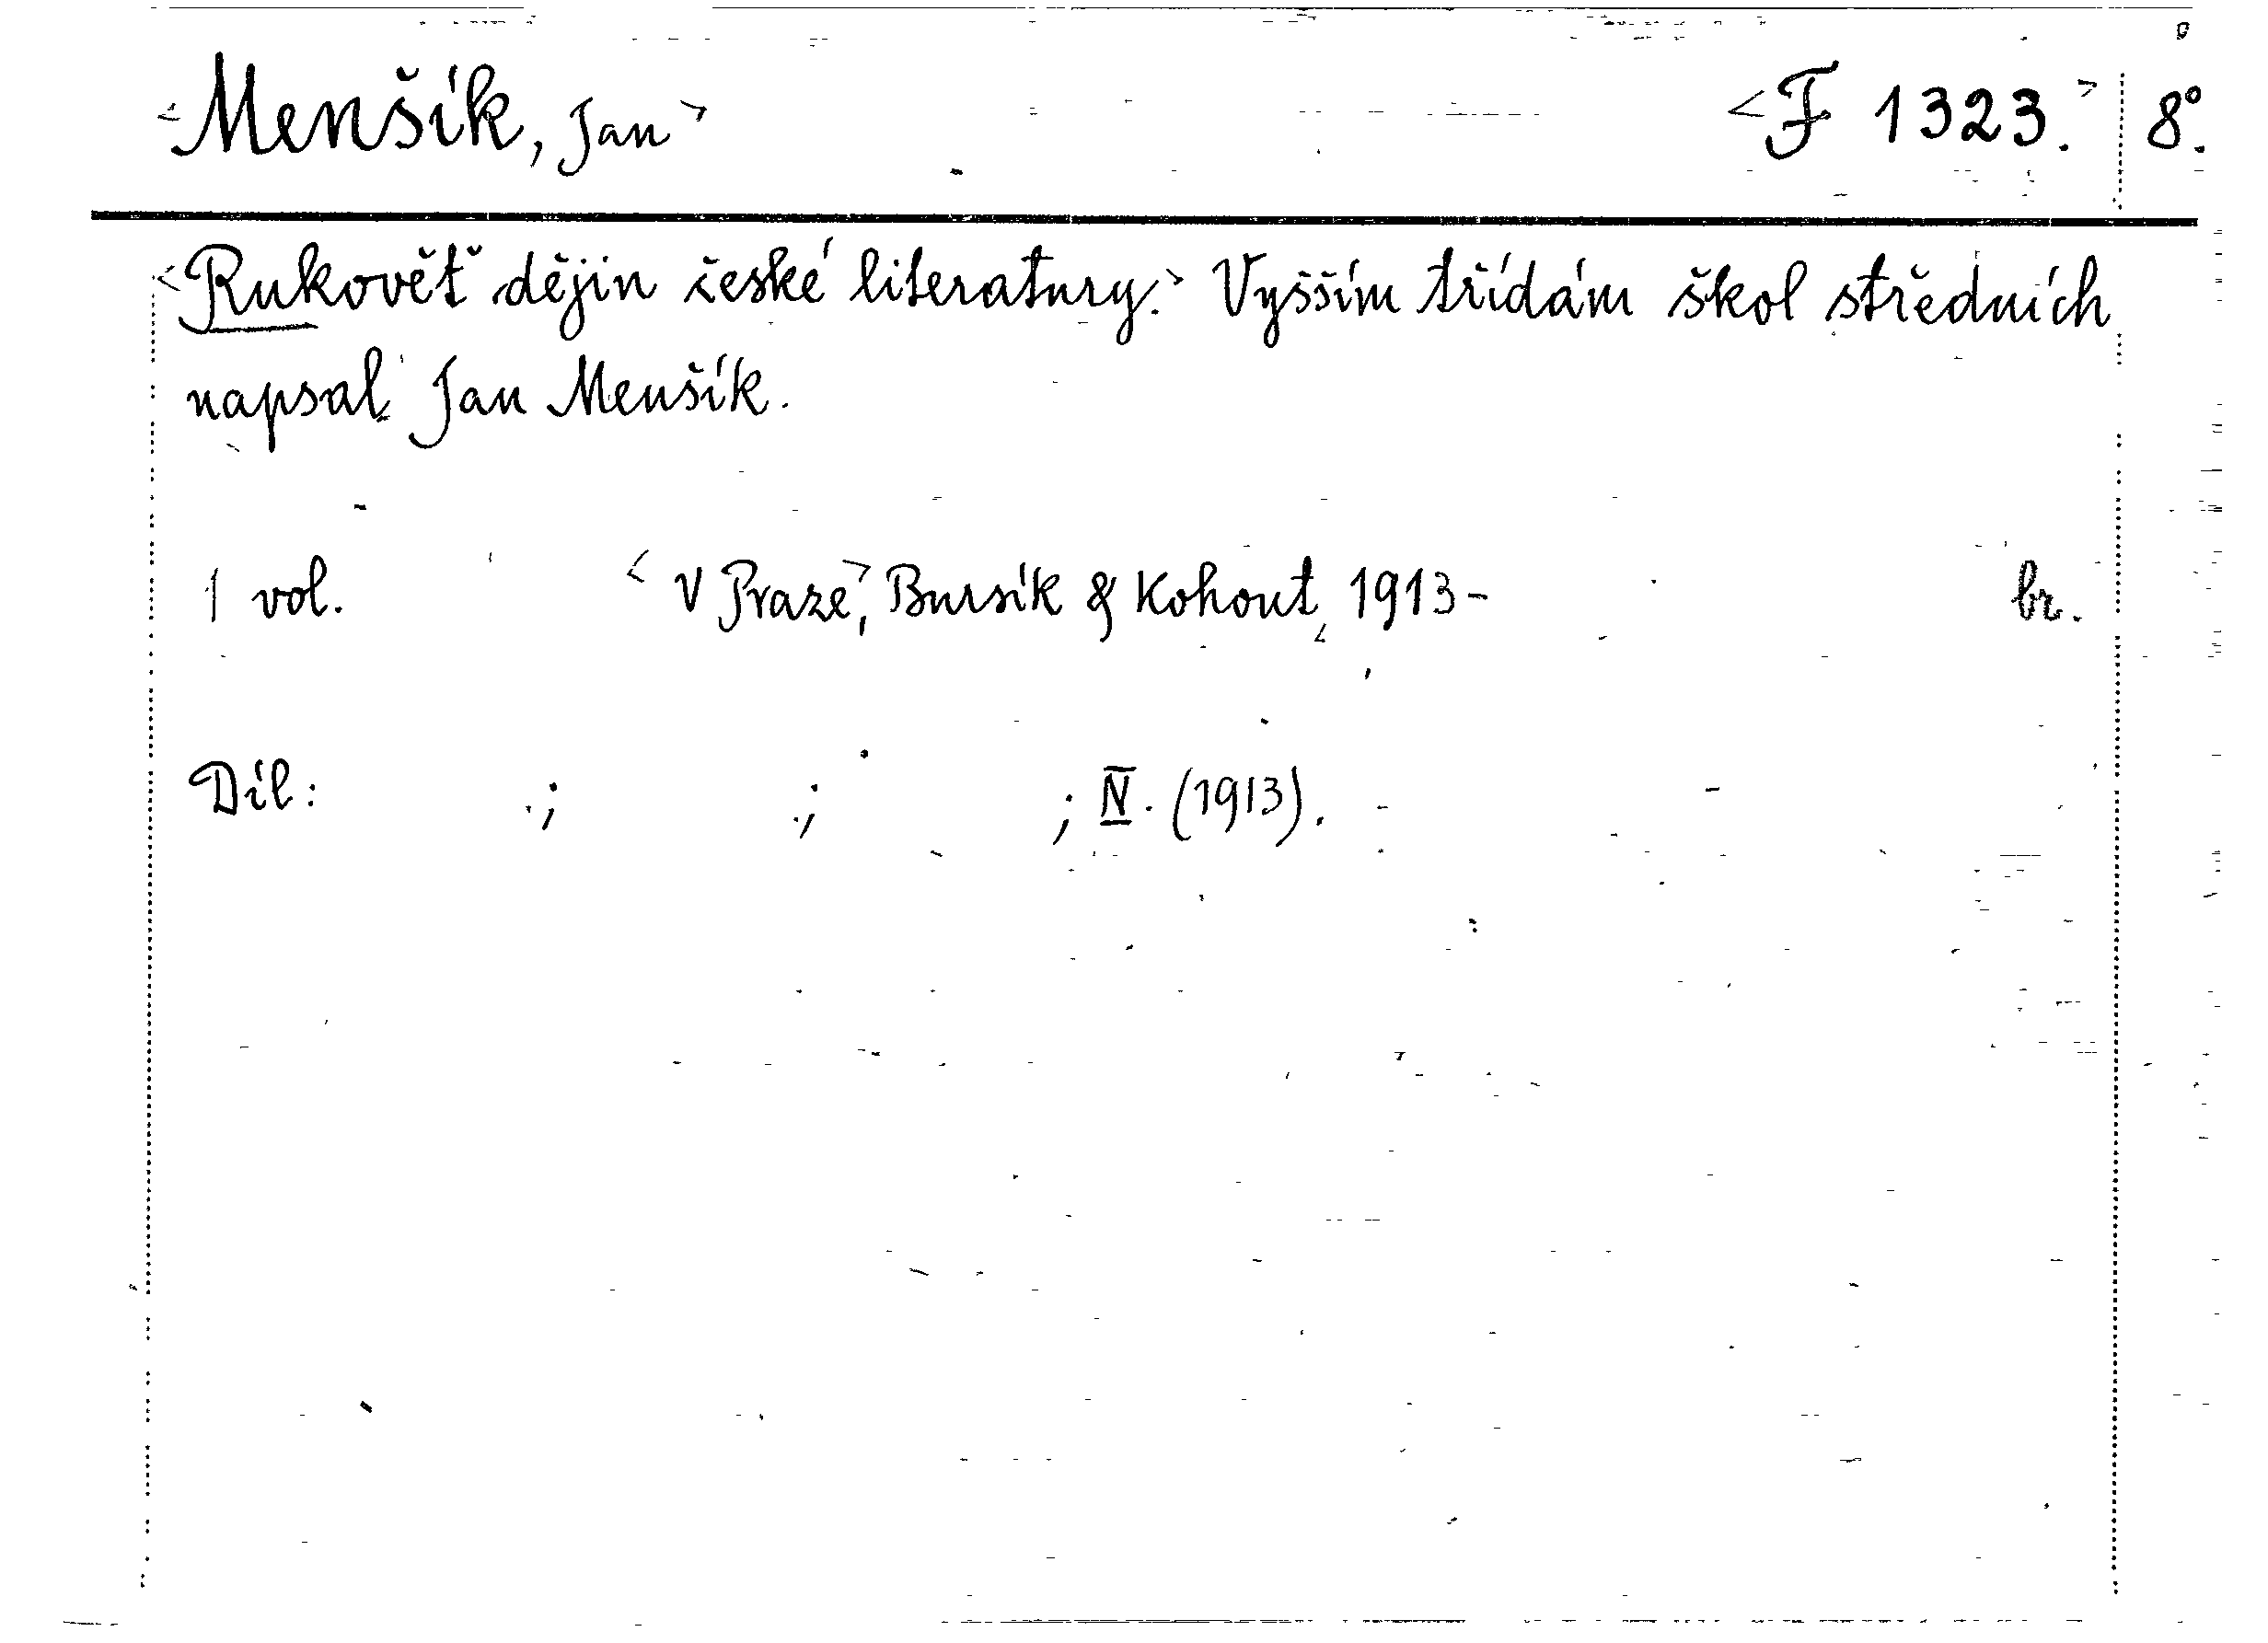 <Menšík, Jan> <F 1323.> 8°.
<Rukovět dějin české literatury.> Vyšším třídám škol středních
napsal Jan Menšík.
1 vol. <V Praze>, Bursík & Kohout, 1913- br.
Díl: ; ; ; IV. (1913).